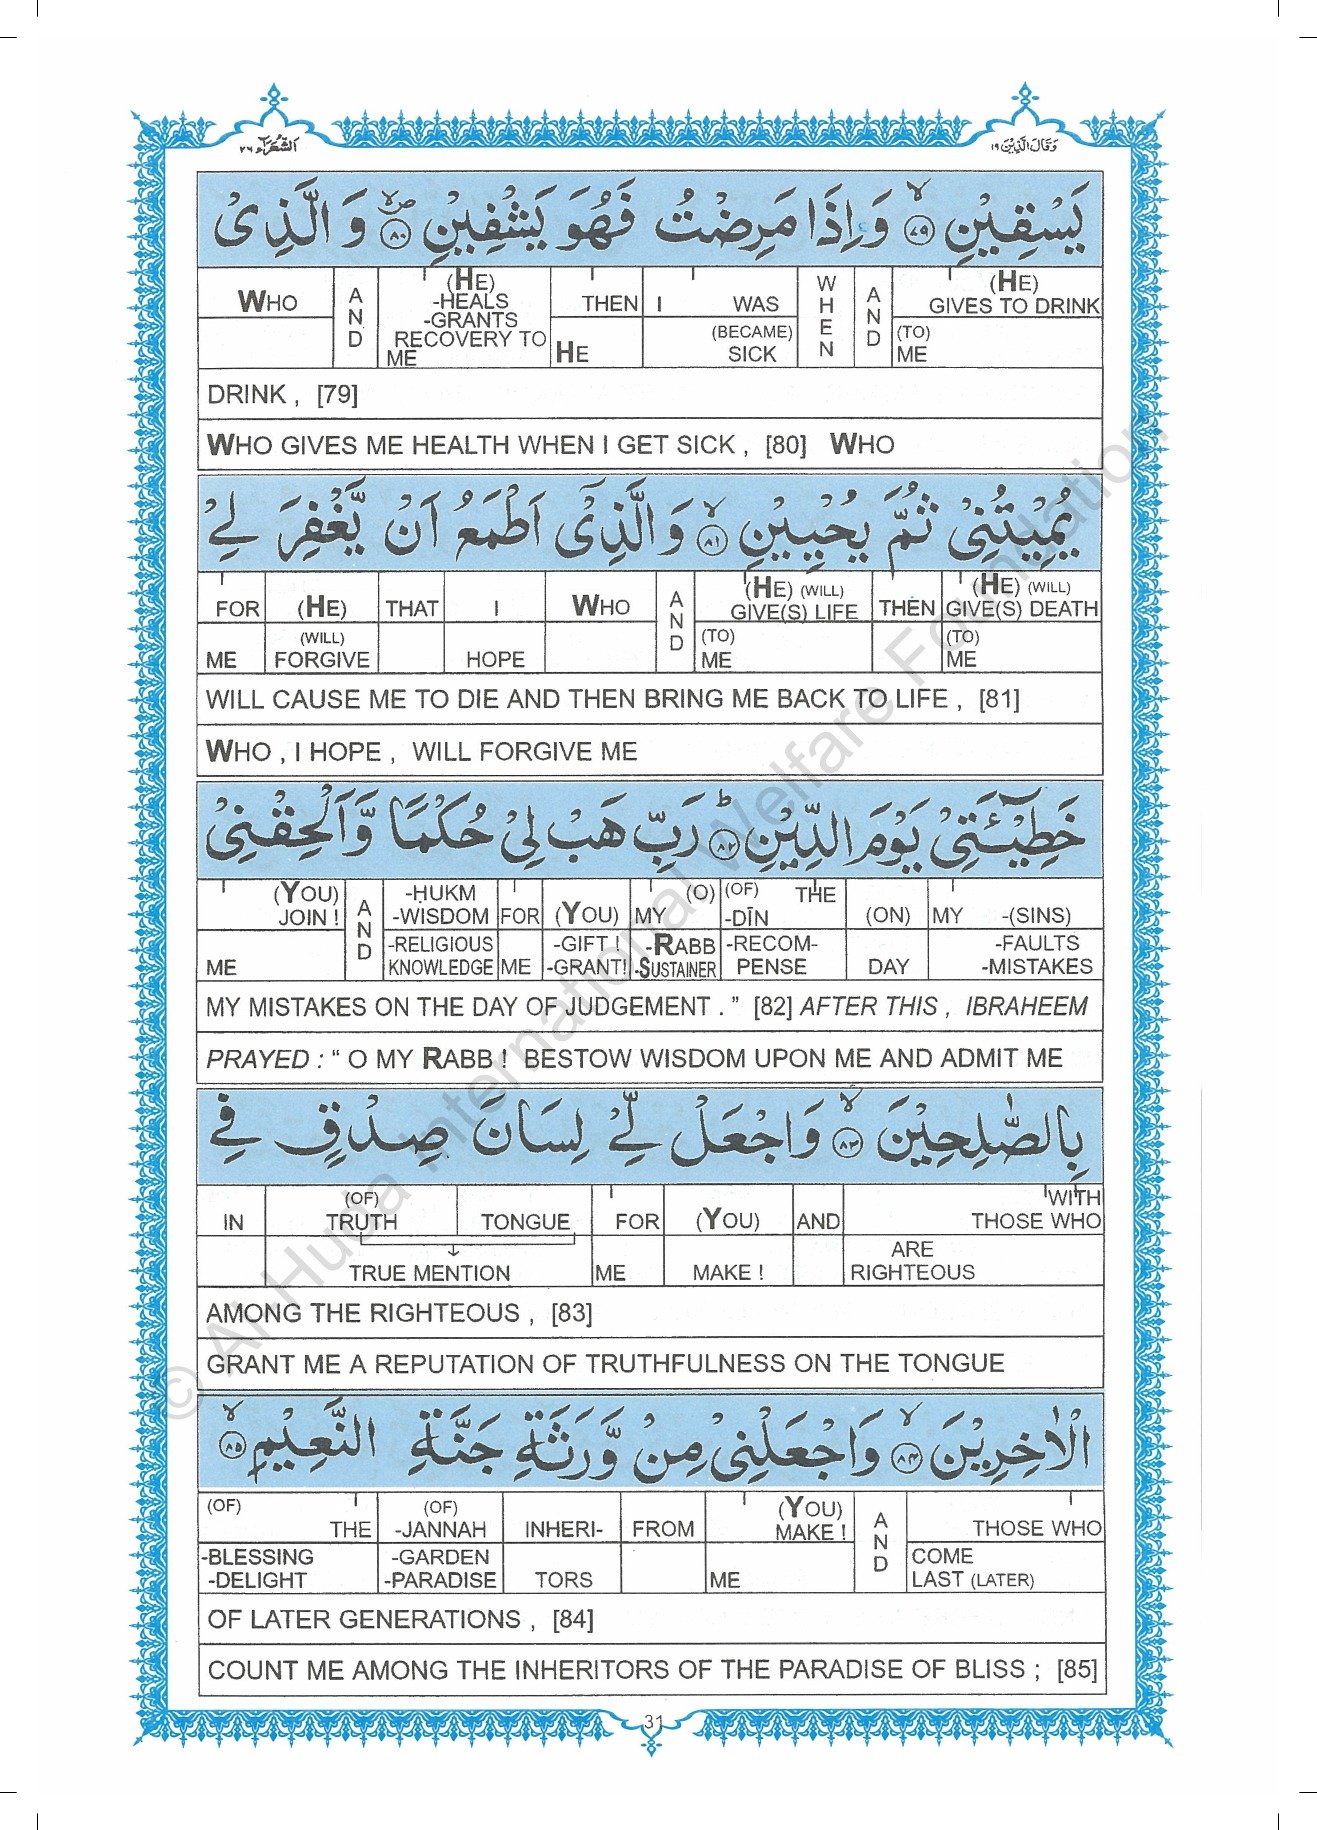 وَقَالَ الَّذِيْنَ ١٩
اَلشُّعَرَآء ٢٦
يَسْقِيْنِ ۙ‏﴿٧٩﴾ وَاِذَا مَرِضْتُ فَهُوَ يَشْفِيْنِ ۙ‏﴿٨٠﴾ وَالَّذِىْ
WHO | AND | (HE) -HEALS -GRANTS RECOVERY TO ME | THEN HE | I WAS (BECAME) SICK | WHEN | AND | (HE) GIVES TO DRINK (TO) ME
DRINK , [79]
WHO GIVES ME HEALTH WHEN I GET SICK , [80] WHO
يُمِيْتُنِىْ ثُمَّ يُحْيِيْنِ ۙ‏﴿٨١﴾ وَالَّذِىْٓ اَطْمَعُ اَنْ يَّغْفِرَ لِىْ
FOR ME | (HE) (WILL) FORGIVE | THAT | I HOPE | WHO | AND | (HE) (WILL) GIVE(S) LIFE (TO) ME | THEN | (HE) (WILL) GIVE(S) DEATH (TO) ME
WILL CAUSE ME TO DIE AND THEN BRING ME BACK TO LIFE , [81]
WHO , I HOPE , WILL FORGIVE ME
خَطِيْٓئَتِىْ يَوْمَ الدِّيْنِ ؕ‏﴿٨٢﴾ رَبِّ هَبْ لِىْ حُكْمًا وَّاَلْحِقْنِىْ
(YOU) JOIN ! ME | AND | -ḤUKM -WISDOM -RELIGIOUS KNOWLEDGE | FOR ME | (YOU) -GIFT ! -GRANT! | MY (O) -RABB -SUSTAINER | (OF) THE -DĪN -RECOMPENSE | (ON) DAY | MY -(SINS) -FAULTS -MISTAKES
MY MISTAKES ON THE DAY OF JUDGEMENT . ” [82] AFTER THIS , IBRAHEEM
PRAYED : “ O MY RABB ! BESTOW WISDOM UPON ME AND ADMIT ME
بِالصّٰلِحِيْنَ ۙ‏﴿٨٣﴾ وَاجْعَلْ لِّىْ لِسَانَ صِدْقٍ فِى
IN | (OF) TRUTH | TONGUE | TRUE MENTION | FOR ME | (YOU) MAKE ! | AND | WITH THOSE WHO ARE RIGHTEOUS
AMONG THE RIGHTEOUS , [83]
GRANT ME A REPUTATION OF TRUTHFULNESS ON THE TONGUE
الْاٰخِرِيْنَ ۙ‏﴿٨٤﴾ وَاجْعَلْنِىْ مِنْ وَّرَثَةِ جَنَّةِ النَّعِيْمِ ۙ‏﴿٨٥﴾
(OF) THE -BLESSING -DELIGHT | (OF) -JANNAH -GARDEN -PARADISE | INHERI-TORS | FROM | (YOU) MAKE ! ME | AND | THOSE WHO COME LAST (LATER)
OF LATER GENERATIONS , [84]
COUNT ME AMONG THE INHERITORS OF THE PARADISE OF BLISS ; [85]
31
© Al-Huda International Welfare Foundation